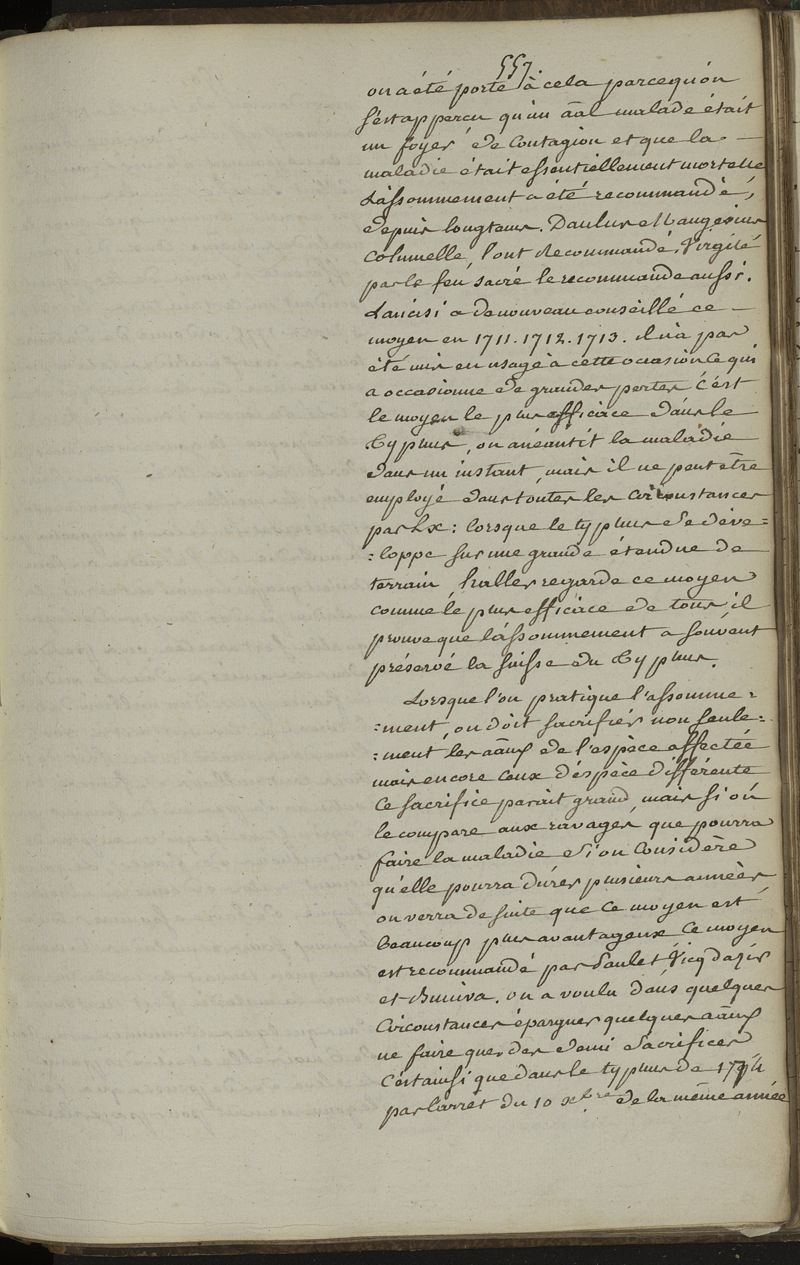 557.
on a été porté à cela parcequ'on
s'est apperçu qu'un āal malade était
un foyer de Contagion et que la
maladie était essentiellement mortelle
L'assommement a été recommandé,
depuis longtems.
Columelle, l'ont Recommandé, Virgile
par le feu sacré le recommande aussi.
Lancisi a de nouveau conseillé ce
moyen en 1711. 1712. 1713. il n'a pas
été mis en usage à cette occasion Ce qui
a occasionne de grandes pertes C'est
le moyen le plus efficace dans le
Typhus, on anéantit la maladie
dans un instant, mais il ne peut être
employé dans toutes les Circonstances
par Ex: lorsque le typhus se déve=
=loppe sur une grande étendue de
terrain, haller regarde ce moyen
comme le plus efficace de tous il
prouve que l'assommement a souvent
préservé la suisse du Typhus.
Lorsque l'on pratique l'assomme=
=ment, on doit sacrifier non seule=
=ment les āaux de l'espèce affectée
mais encore Ceux d'espèce différente
Ce sacrifice parait grand, mais si on
le compare aux ravages que pourra
faire la maladie si on Considère
qu'elle pourra durer plusieurs années
on verra de suite que Ce moyen est
Beaucoup plus avantageux Ce moyen
est recommandé par Paulet Vicq dazir
et Buniva. on a voulu dans quelques
Circonstances épargner quelques āaux
ne faire que des demi Sacrifices
C'est ainsi que dans le typhus de 1774
par l'arrêt du 10 xbre de la même année